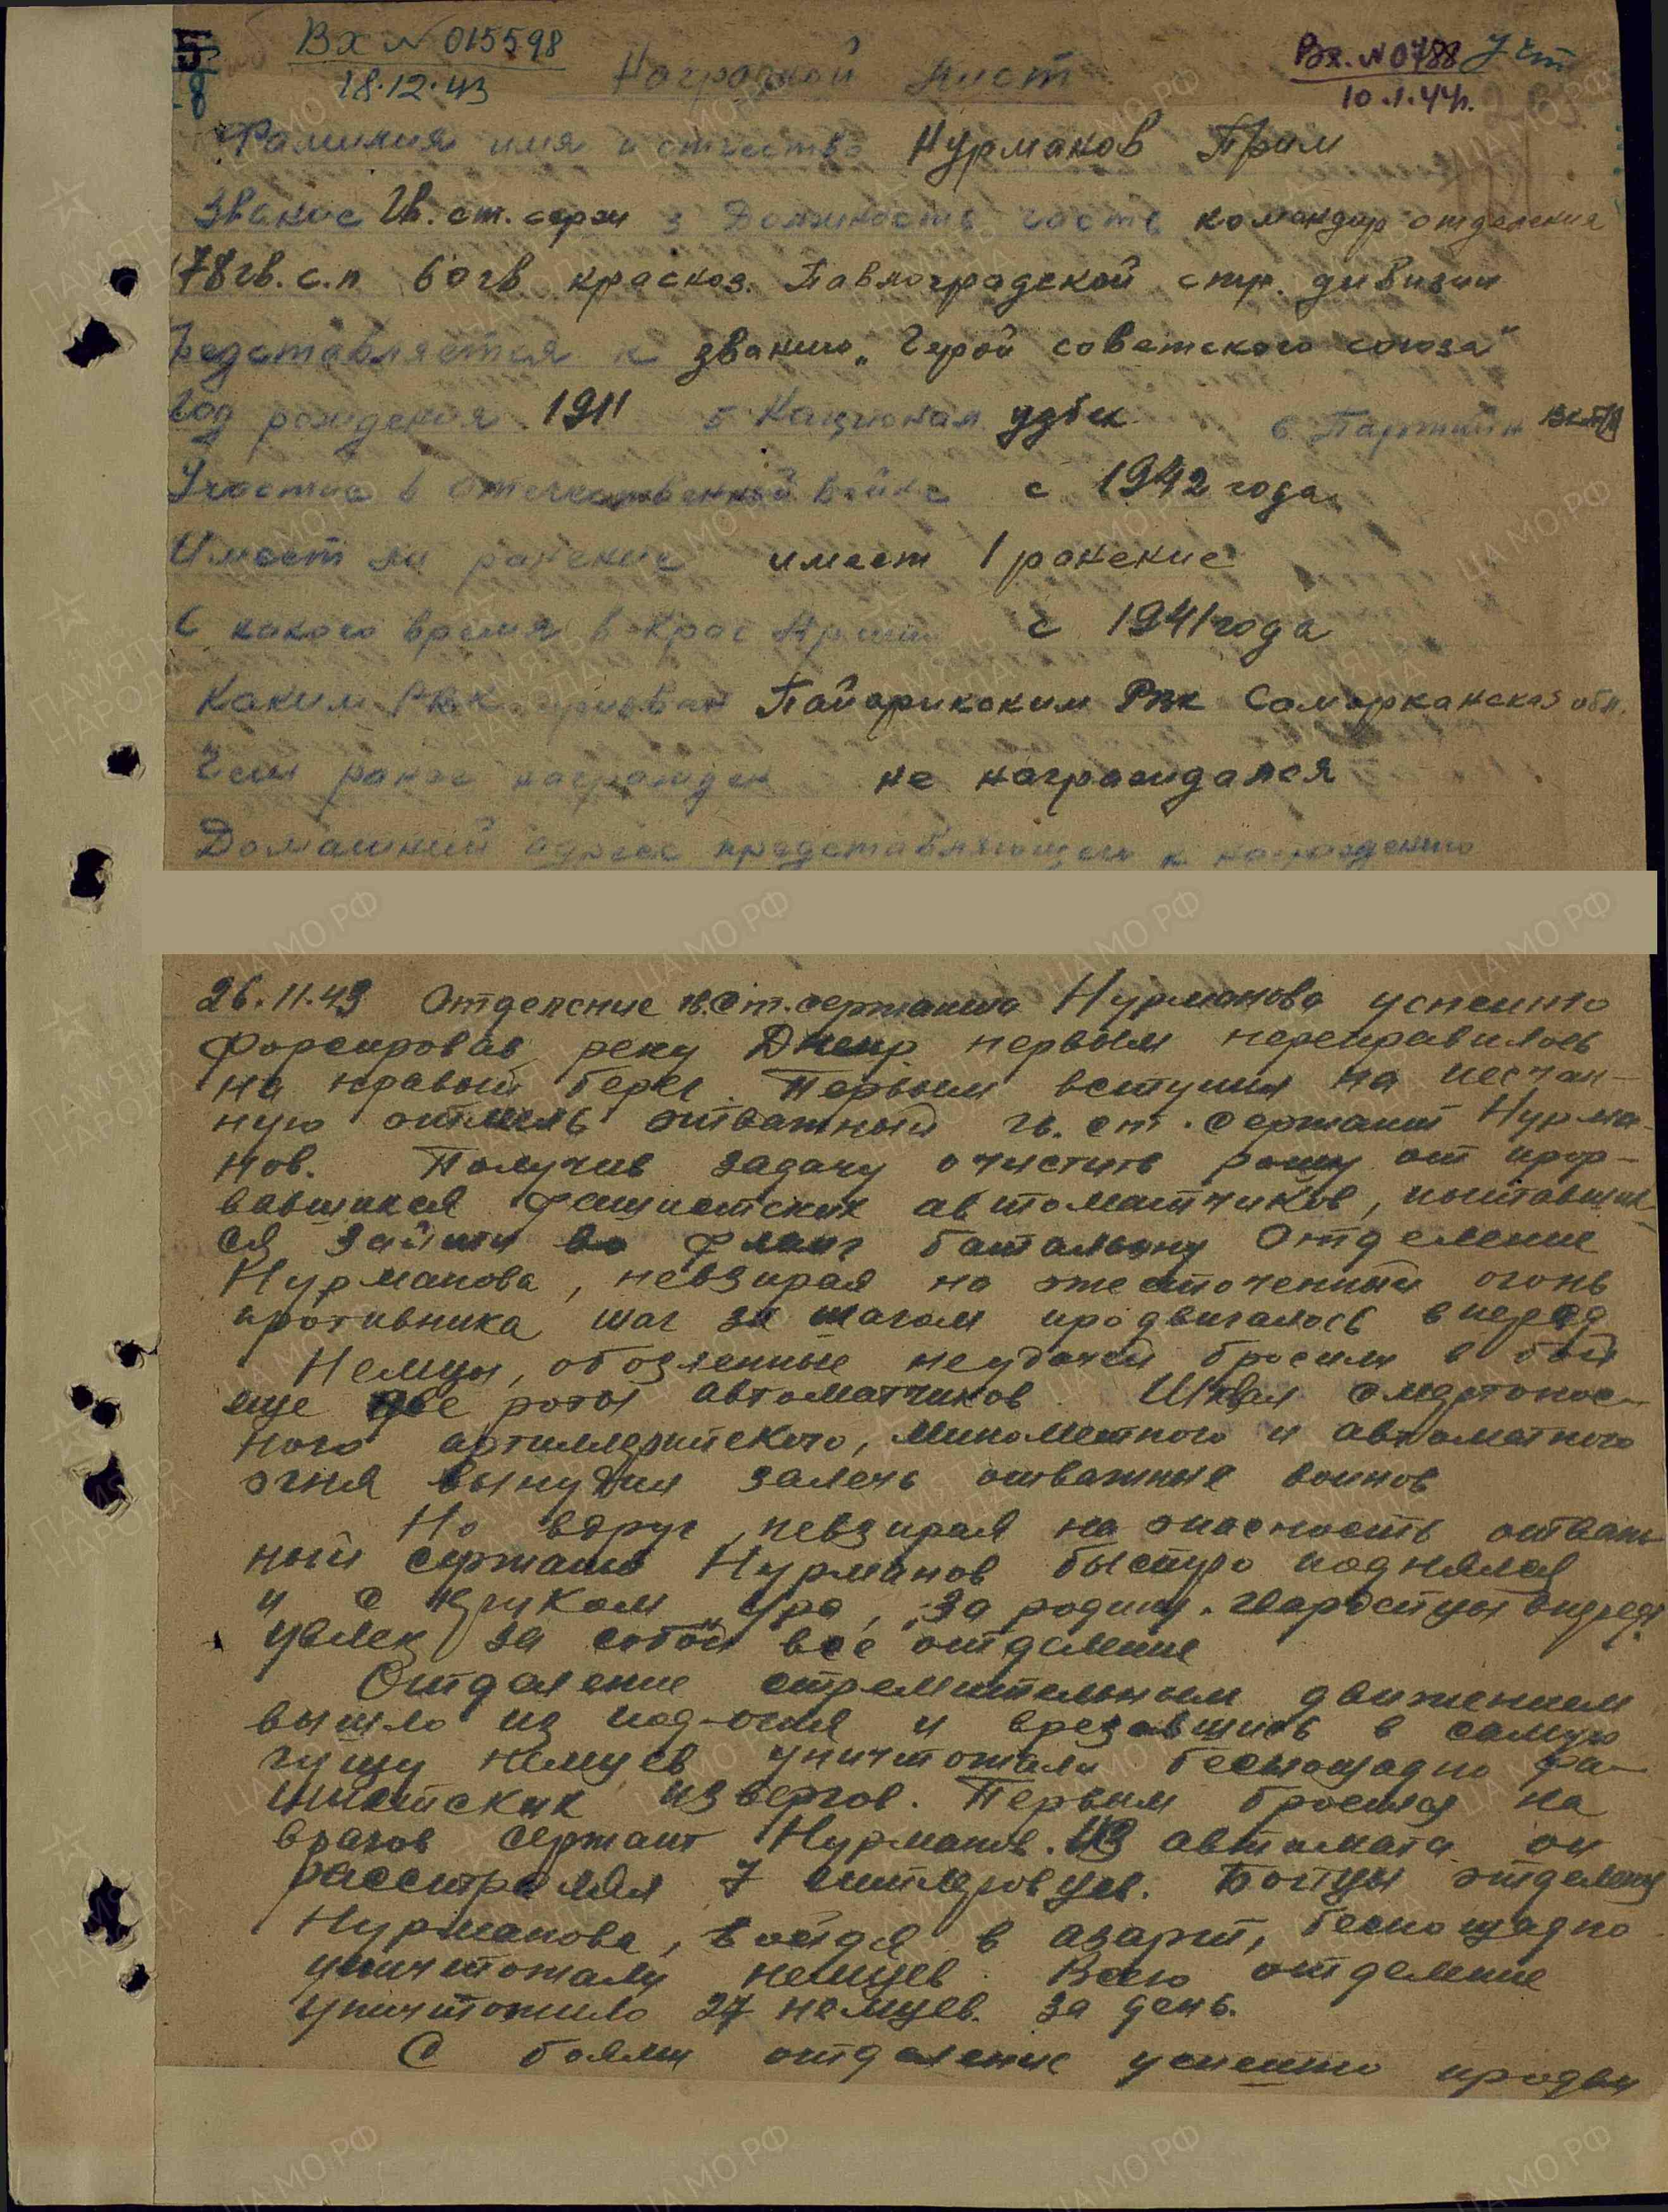 5
8
Вх N 015598
18.12.43
Вх. N 0788
10.1.44г.
Наградной лист
Фамилия имя и отчество Нурманов Прим
Звание Гв. ст. серж 3 Должность часть командир отделения
178 гв. с.п 60 гв краскоз. Павлоградской стр. дивизии
Представляется к званию „Герой советского союза"
Год рождения 1911 5 Национал узбек 6 Партийн ВКП(б)
Участие в отечественной войне с 1942 года.
Имеет ли ранение имеет 1 ранение
С какого время в Крас Армии с 1941 года
Каким РВК призван Пайарикским РВК Самарканская обл.
Чем ранее награжден не награждался
Домашний адрес представляющего к награждению
26.11.43 Отделение гв. ст. сержанта Нурманова успешно
форсировав реку Днепр первым переправилось
на правый берег. Первым вступил на песчан-
ную отмель отважный гв. ст. сержант Нурма-
нов. Получив задачу очистить рощу от прор-
вавшихся фашистских автоматчиков, пытавших-
ся зайти во фланг батальону Отделение
Нурманова, невзирая на ожесточенный огонь
противника шаг за шагом продвигалось вперед
Немцы, обозленные неудачей бросили в бой
еще две роты автоматчиков Шквал смертонос-
ного артиллерийского, минометного и автоматного
огня вынудил залечь отважные воинов
Но вдруг, невзирая на опасность отваж-
ный сержант Нурманов быстро поднялся
и с криком „ура, за родину. Гвардейцы вперед"
увлек за собой все отделение
Отделение стремительным движением
вышло из под-огня и врезавшись в самую
гущу немцев уничтожали беспощадно фа-
шистских извергов. Первым бросился на
врагов сержант Нурманов. Из автомата он
расстрелял 7 гитлеровцев. Бойцы отделения
Нурманова, войдя в азарт, беспощадно
уничтожали немцев. Всего отделение
уничтожило 27 немцев. за день.
С боями отделение успешно продви